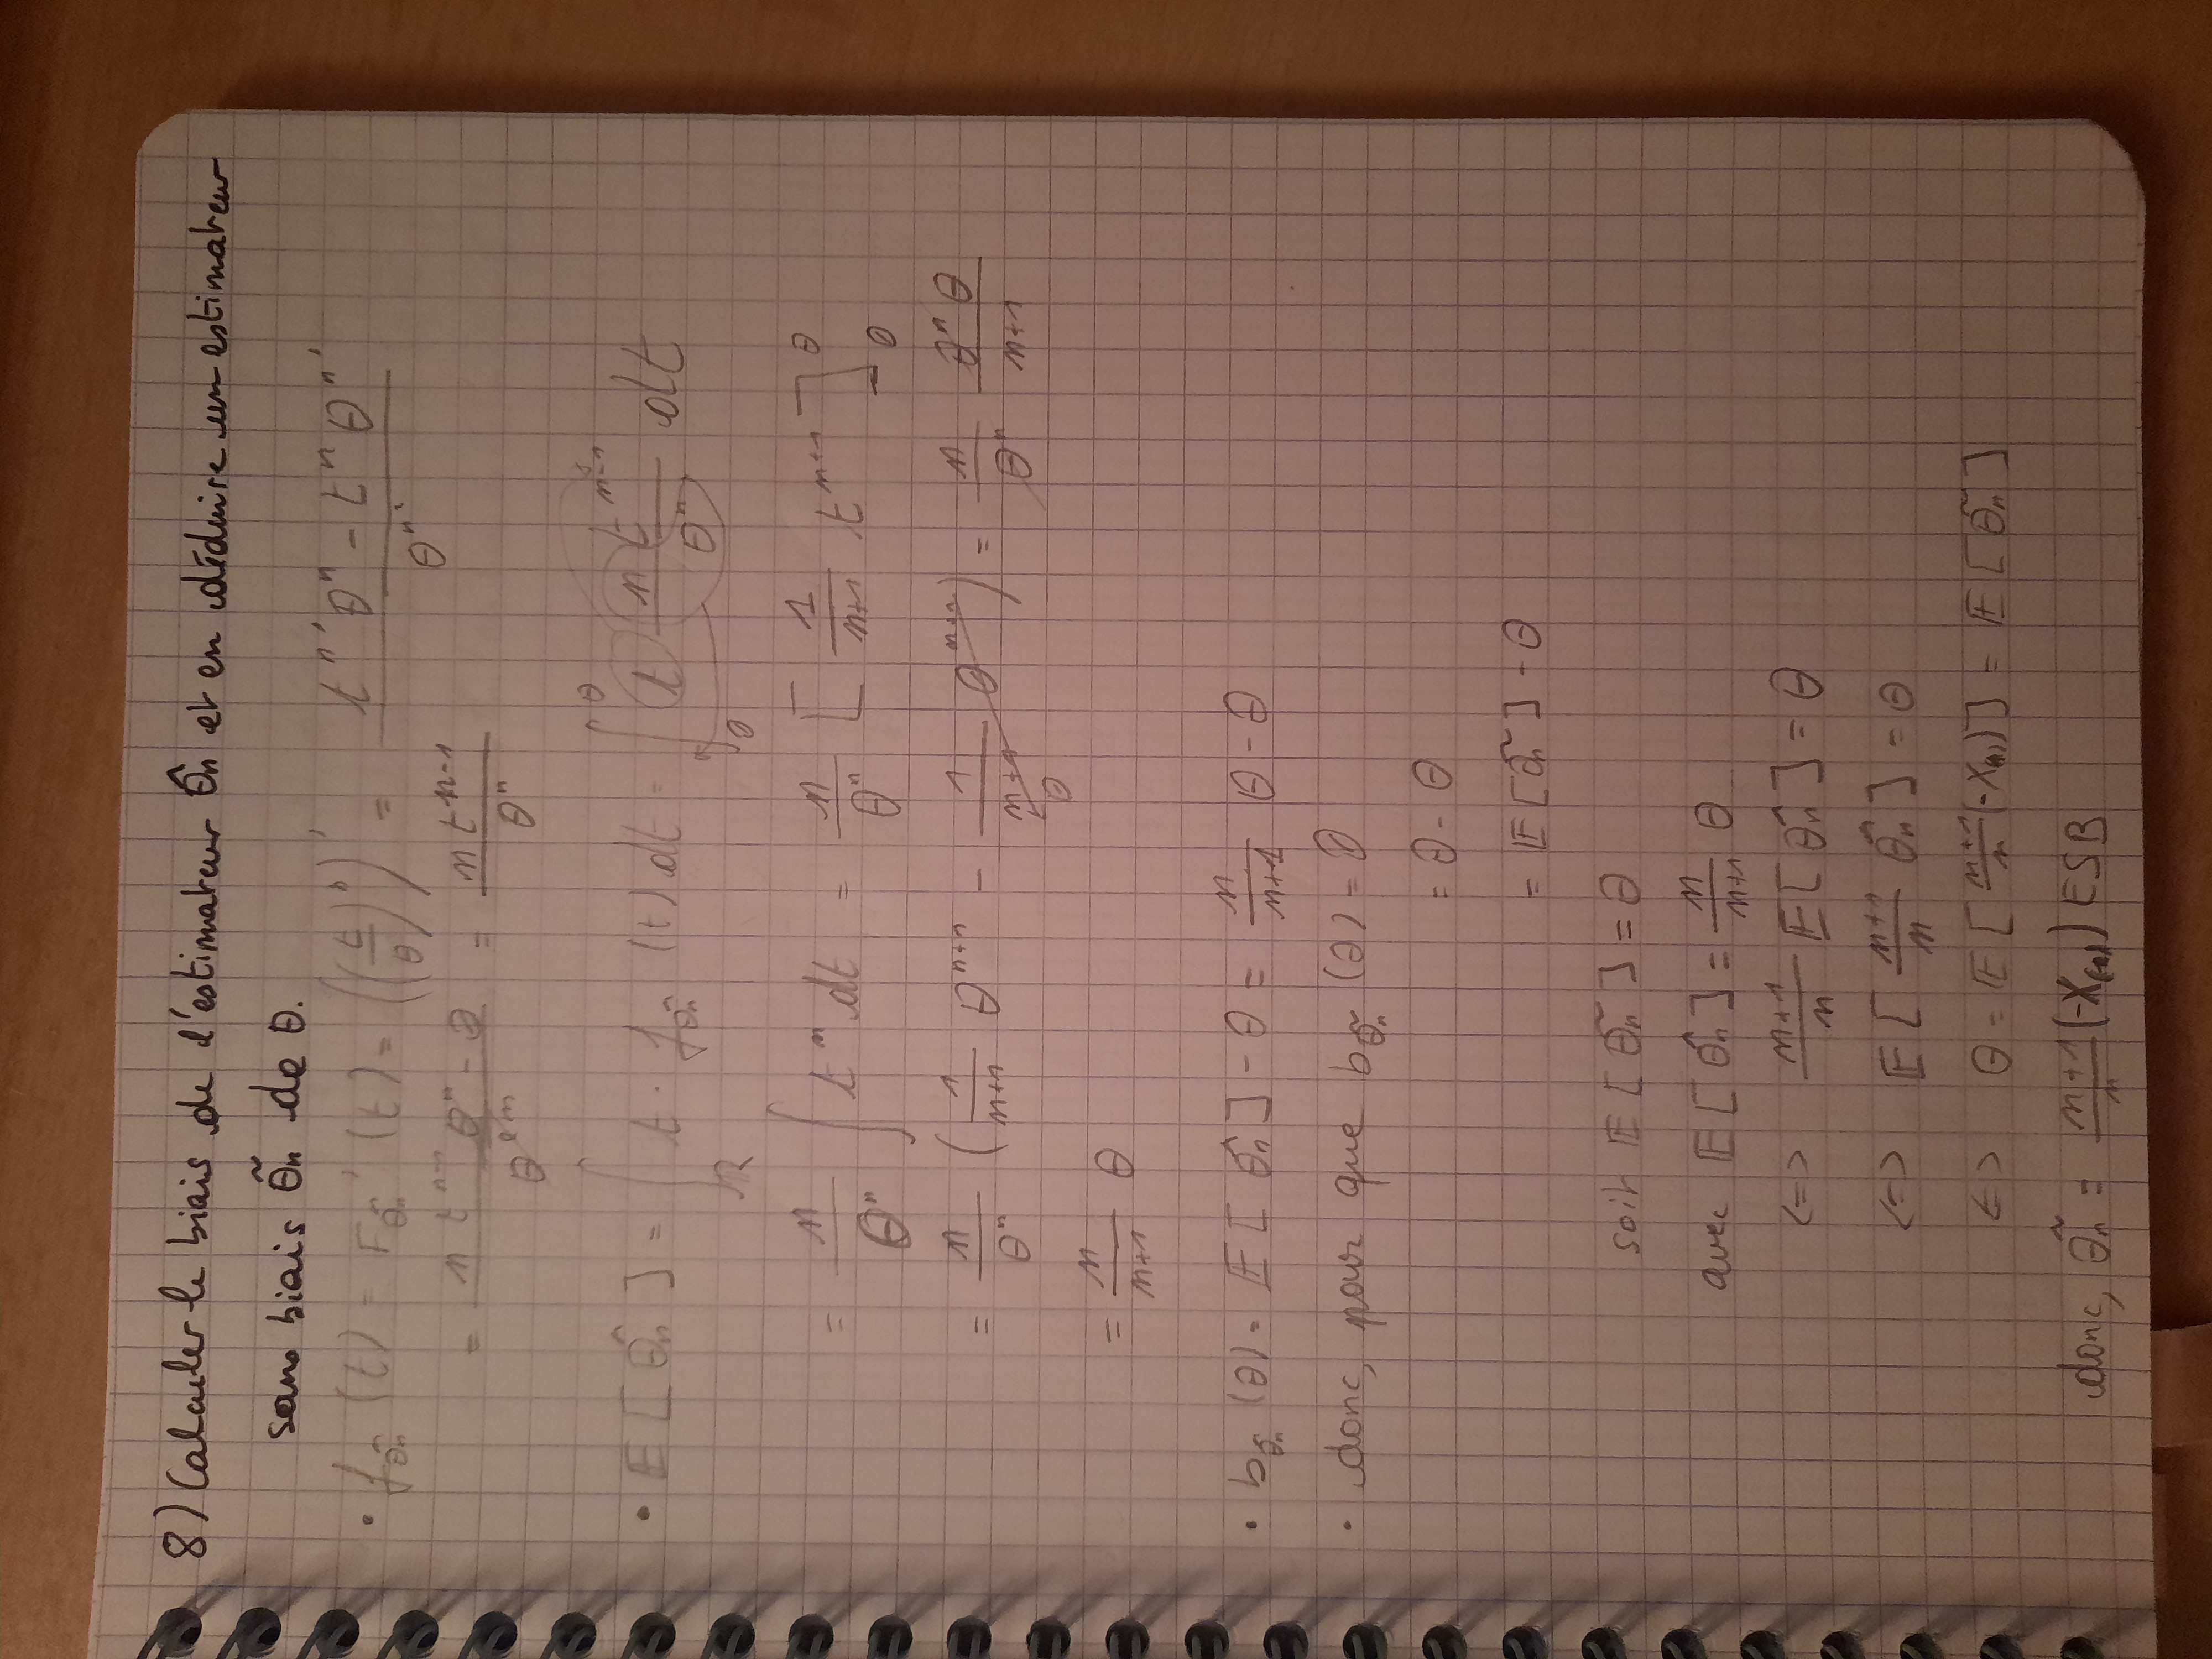 8) Calculer le biais de l'estimateur θ̂n et en déduire un estimateur
sans biais θ̃n de θ.
• f_θ̂n (t) = F_θ̂n' (t) = ((t/θ)^n)' = (t^n' θ^n - t^n θ^n') / θ^n²
= (n t^(n-1) θ^n - 0) / θ^(2n) = n t^(n-1) / θ^n
• E[θ̂n] = ∫_R t · f_θ̂n (t) dt = ∫_0^θ t (n t^(n-1) / θ^n) dt
= n/θ^n ∫ t^n dt = n/θ^n [1/(n+1) t^(n+1)]_0^θ
= n/θ^n (1/(n+1) θ^(n+1) - 1/(n+1) 0^(n+1)) = n/θ^n (θ^n θ)/(n+1)
0
= n/(n+1) θ
• b_θ̂n (θ) = E[θ̂n] - θ = n/(n+1) θ - θ
• donc, pour que b_θ̃n (θ) = 0
= θ - θ
= E[θ̃n] - θ
soit E[θ̃n] = θ
avec E[θ̂n] = n/(n+1) θ
<=> (n+1)/n E[θ̂n] = θ
<=> E[(n+1)/n θ̂n] = θ
<=> θ = E[(n+1)/n (-X(n))] = E[θ̃n]
donc, θ̃n = (n+1)/n (-X(n)) ESB